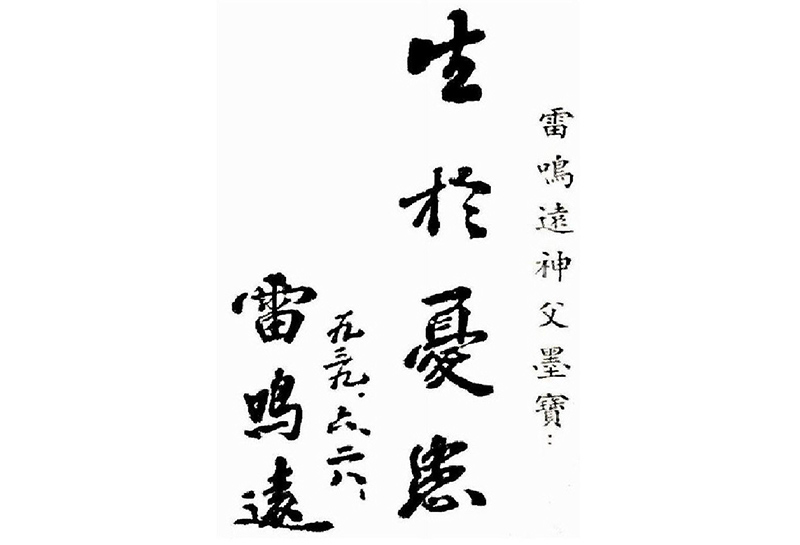 雷鳴遠神父墨寶：
生於憂患
一九三九、六、二八、
雷鳴遠